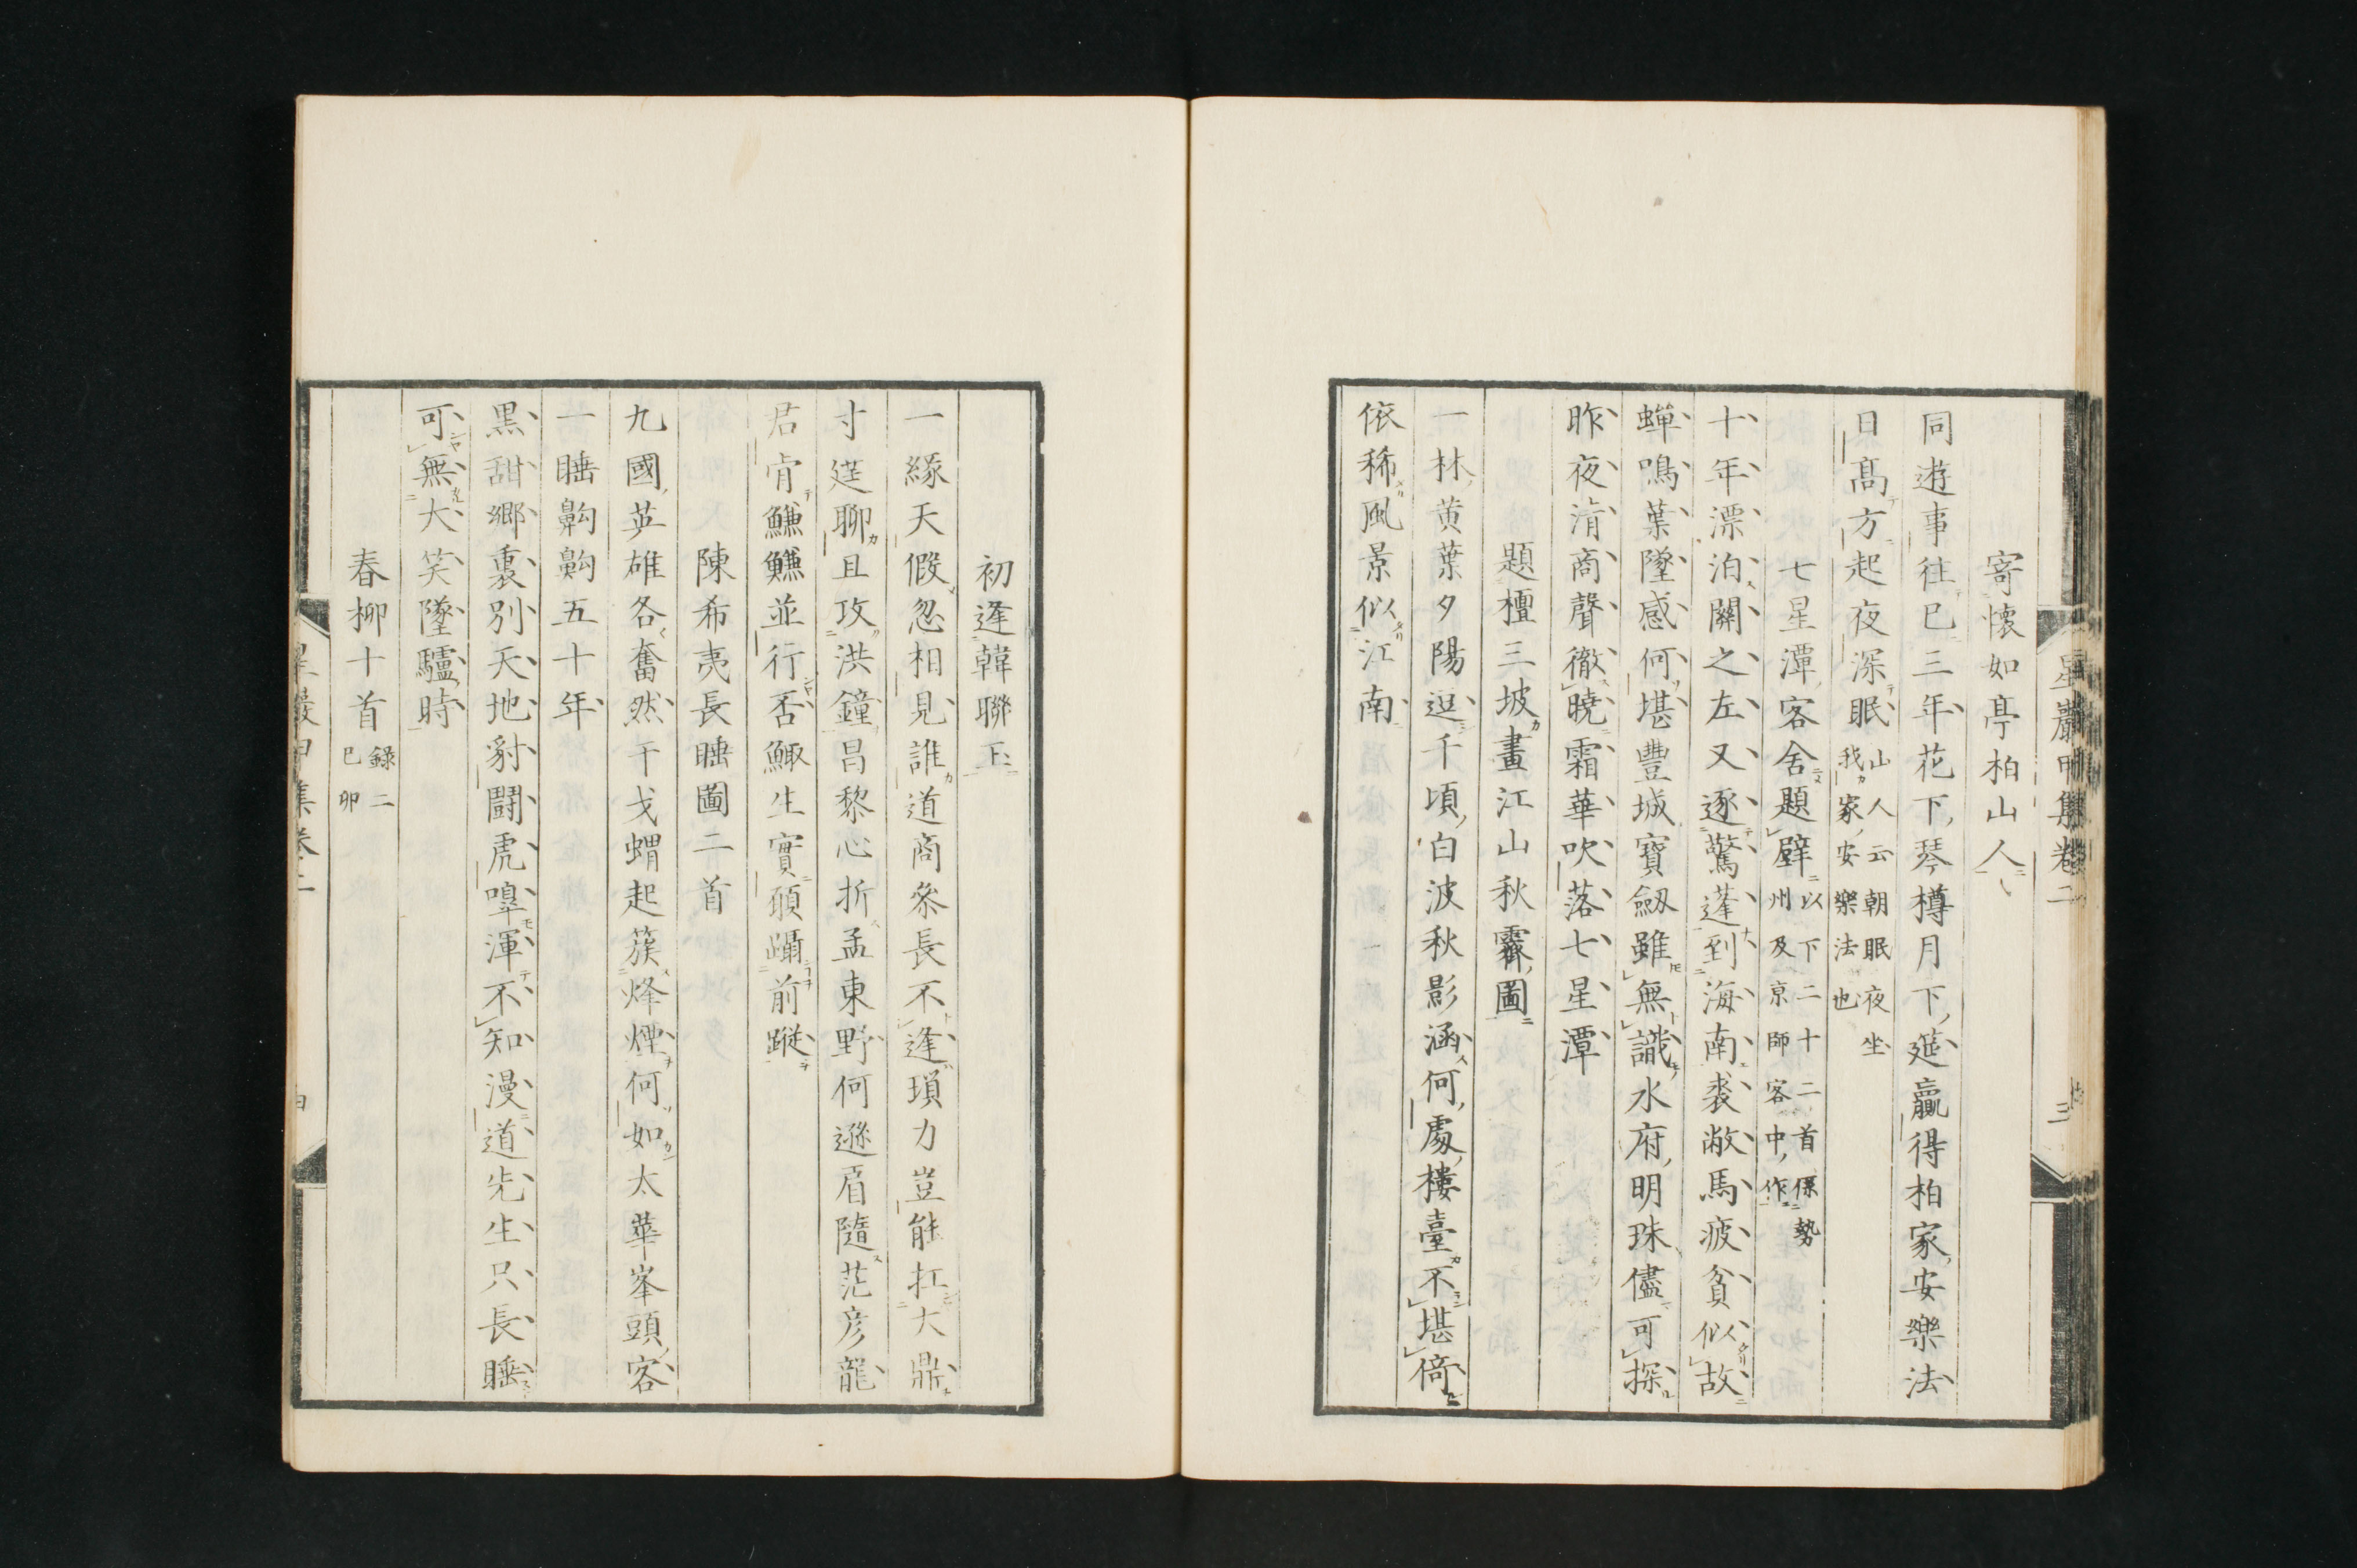 星巖甲集卷二
三
寄懷如亭柏山人
同遊事往已三年花下琴樽月下筵贏得柏家安樂法
日高方起夜深眠 山人云朝眠夜坐我家安樂法也
七星潭客舍題壁 以下二十二首係勢州及京師客中作
十年漂泊關之左又逐驚蓬到海南裘敝馬疲貧似故
蟬鳴葉墜感何堪豐城寶劔雖無識水府明珠儘可探
昨夜淯商聲徹曉霜華吹落七星潭
題檀三坡畫江山秋霽圖
一林黄葉夕陽逗千頃白波秋影涵何處樓臺不堪倚
依稀風景似江南
初逢韓聯玉
一緣天假忽相見誰道商參長不逢瑣力豈能扛大鼎
寸莛聊且攻洪鐘昌黎心折孟東野何遜眉隨范彥龍
君肯鰜鰜並行否鯫生實願躡前蹤
陳希夷長睡圖二首
九國英雄各奮然干戈蝟起簇烽煙何如太華峯頭客
一睡齁齁五十年
黒甜鄉裏別天地豺鬪虎嘷渾不知漫道先生只長睡
可無大笑墜驢時
春柳十首 錄二 己卯
星巖甲集卷二
四